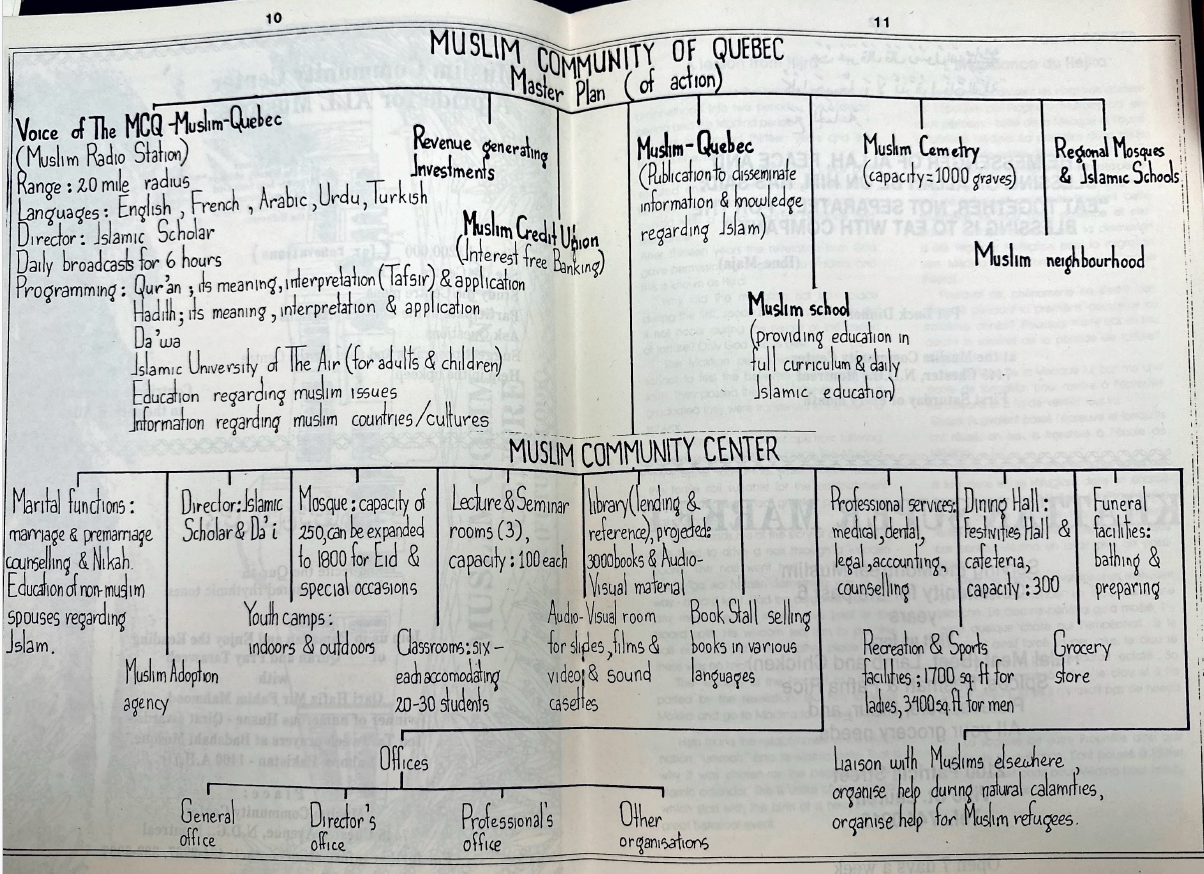 10
11
MUSLIM COMMUNITY OF QUEBEC
Master Plan (of action)
Voice of The MCQ-Muslim-Quebec
(Muslim Radio Station)
Range : 20 mile radius
Languages : English, French, Arabic, Urdu, Turkish
Director : Islamic Scholar
Daily broadcasts for 6 hours
Programming : Qur'an ; its meaning, interpretation (Tafsir) & application
Hadith; its meaning, interpretation & application
Da'wa
Islamic University of The Air (for adults & children)
Education regarding muslim issues
Information regarding muslim countries/cultures
Revenue generating
Investments
Muslim Credit Union
(Interest free Banking)
Muslim-Quebec
(Publication to disseminate
information & knowledge
regarding Islam)
Muslim school
(providing education in
full curriculum & daily
Islamic education)
Muslim Cemetry
(capacity = 1000 graves)
Muslim neighbourhood
Regional Mosques
& Islamic Schools
MUSLIM COMMUNITY CENTER
Marital functions :
marriage & premarriage
counselling & Nikah.
Education of non-muslim
spouses regarding
Islam.
Muslim Adoption
agency
Director: Islamic
Scholar & Da'i
Mosque : capacity of
250, can be expanded
to 1800 for Eid &
special occasions
Youth camps :
indoors & outdoors
Lecture & Seminar
rooms (3),
capacity : 100 each
Classrooms : six -
each accomodating
20-30 students
library (lending &
reference), projected:
3000 books & Audio-
Visual material
Audio-Visual room
for slides, films &
video & sound
casettes
Book Stall selling
books in various
languages
Professional services:
medical, dental,
legal, accounting,
counselling
Recreation & Sports
facilities ; 1700 sq. ft for
ladies, 3400 sq. ft for men
Dining Hall :
Festivities Hall &
cafeteria,
capacity : 300
Grocery
store
Funeral
facilities:
bathing &
preparing
Offices
General
office
Director's
office
Professional's
office
Other
organisations
Liaison with Muslims elsewhere,
organise help during natural calamities,
organise help for Muslim refugees.